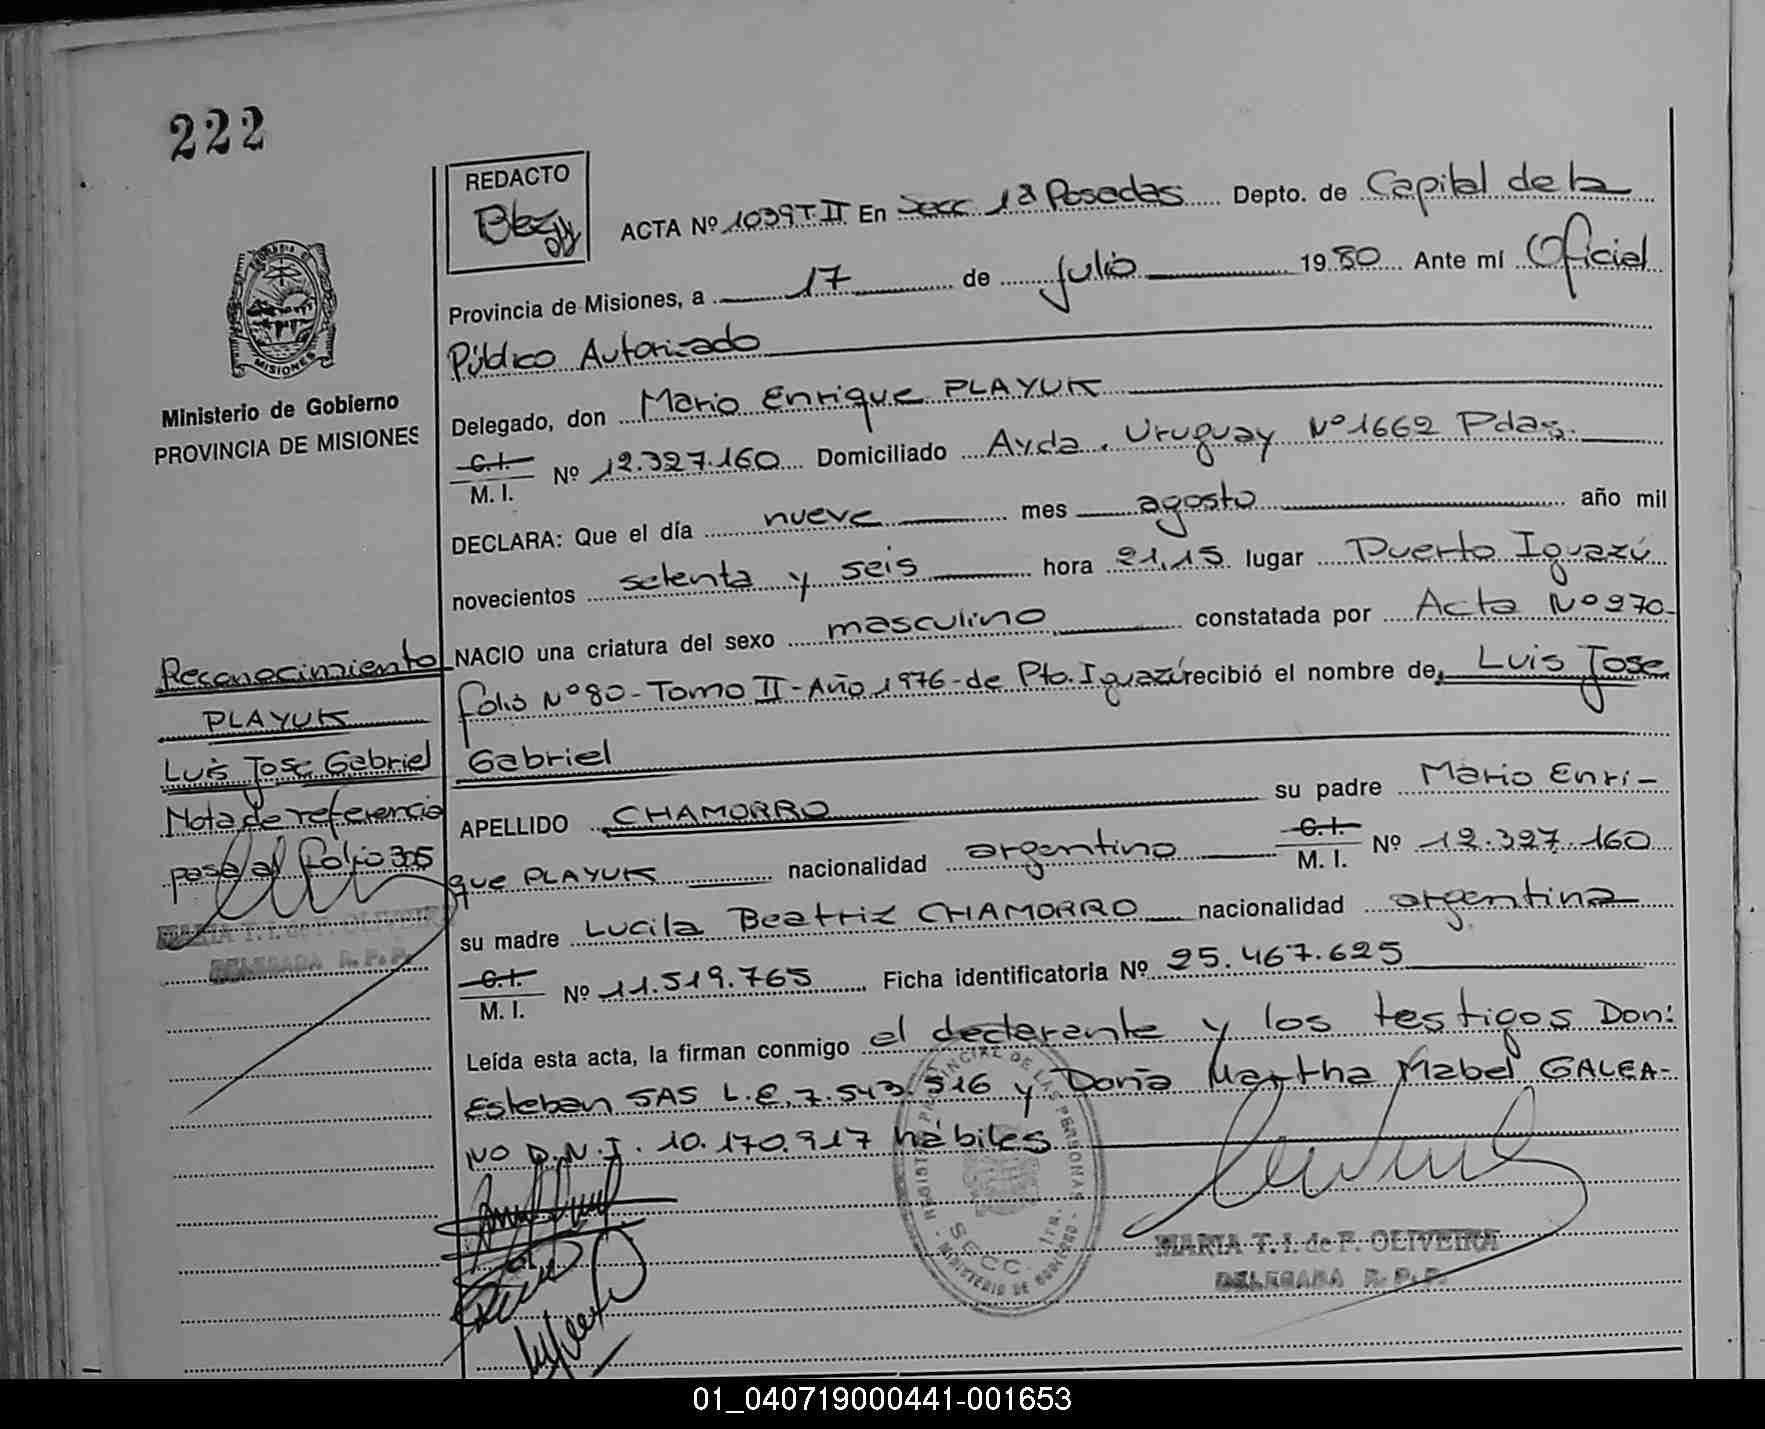 222
REDACTO
ACTA Nº 1039 T. II En Secc. 1ª Posadas Depto. de Capital de la
Provincia de Misiones, a 17 de julio 1980 Ante mí Oficial
Público Autorizado
MISIONES
Ministerio de Gobierno
PROVINCIA DE MISIONES
Delegado, don Mario Enrique PLAYUK
C.I. M. I. Nº 12.327.160 Domiciliado Avda. Uruguay Nº 1662 Pdas.
DECLARA: Que el día nueve mes agosto año mil
novecientos setenta y seis hora 21,15 lugar Puerto Iguazú
NACIO una criatura del sexo masculino constatada por Acta Nº 970-
folio Nº 80 - Tomo II - Año 1976 - de Pto. Iguazú recibió el nombre de, Luis Jose
Gabriel
APELLIDO CHAMORRO su padre Mario Enri-
que PLAYUK nacionalidad argentino C.I. M. I. Nº 12.327.160
su madre Lucila Beatriz CHAMORRO nacionalidad argentina
C.I. M. I. Nº 11.519.765 Ficha identificatoria Nº 25.467.625
Leída esta acta, la firman conmigo el declarente y los testigos Don:
Esteban SAS L.E. 7.543.516 y Doña Martha Mabel GALEA-
NO D.N.I. 10.170.917 hábiles
Reconocimiento
PLAYUK
Luis Jose Gabriel
Nota de referencia
pasa al folio 305
MARIA T. I. de F. OLIVEIRA
DELEGADA R. P. P.
REGISTRO PROVINCIAL DE LAS PERSONAS
SECC. 1ra.
MINISTERIO DE GOBIERNO
MARIA T. I. de F. OLIVEIRA
DELEGADA R. P. P.
01_040719000441-001653